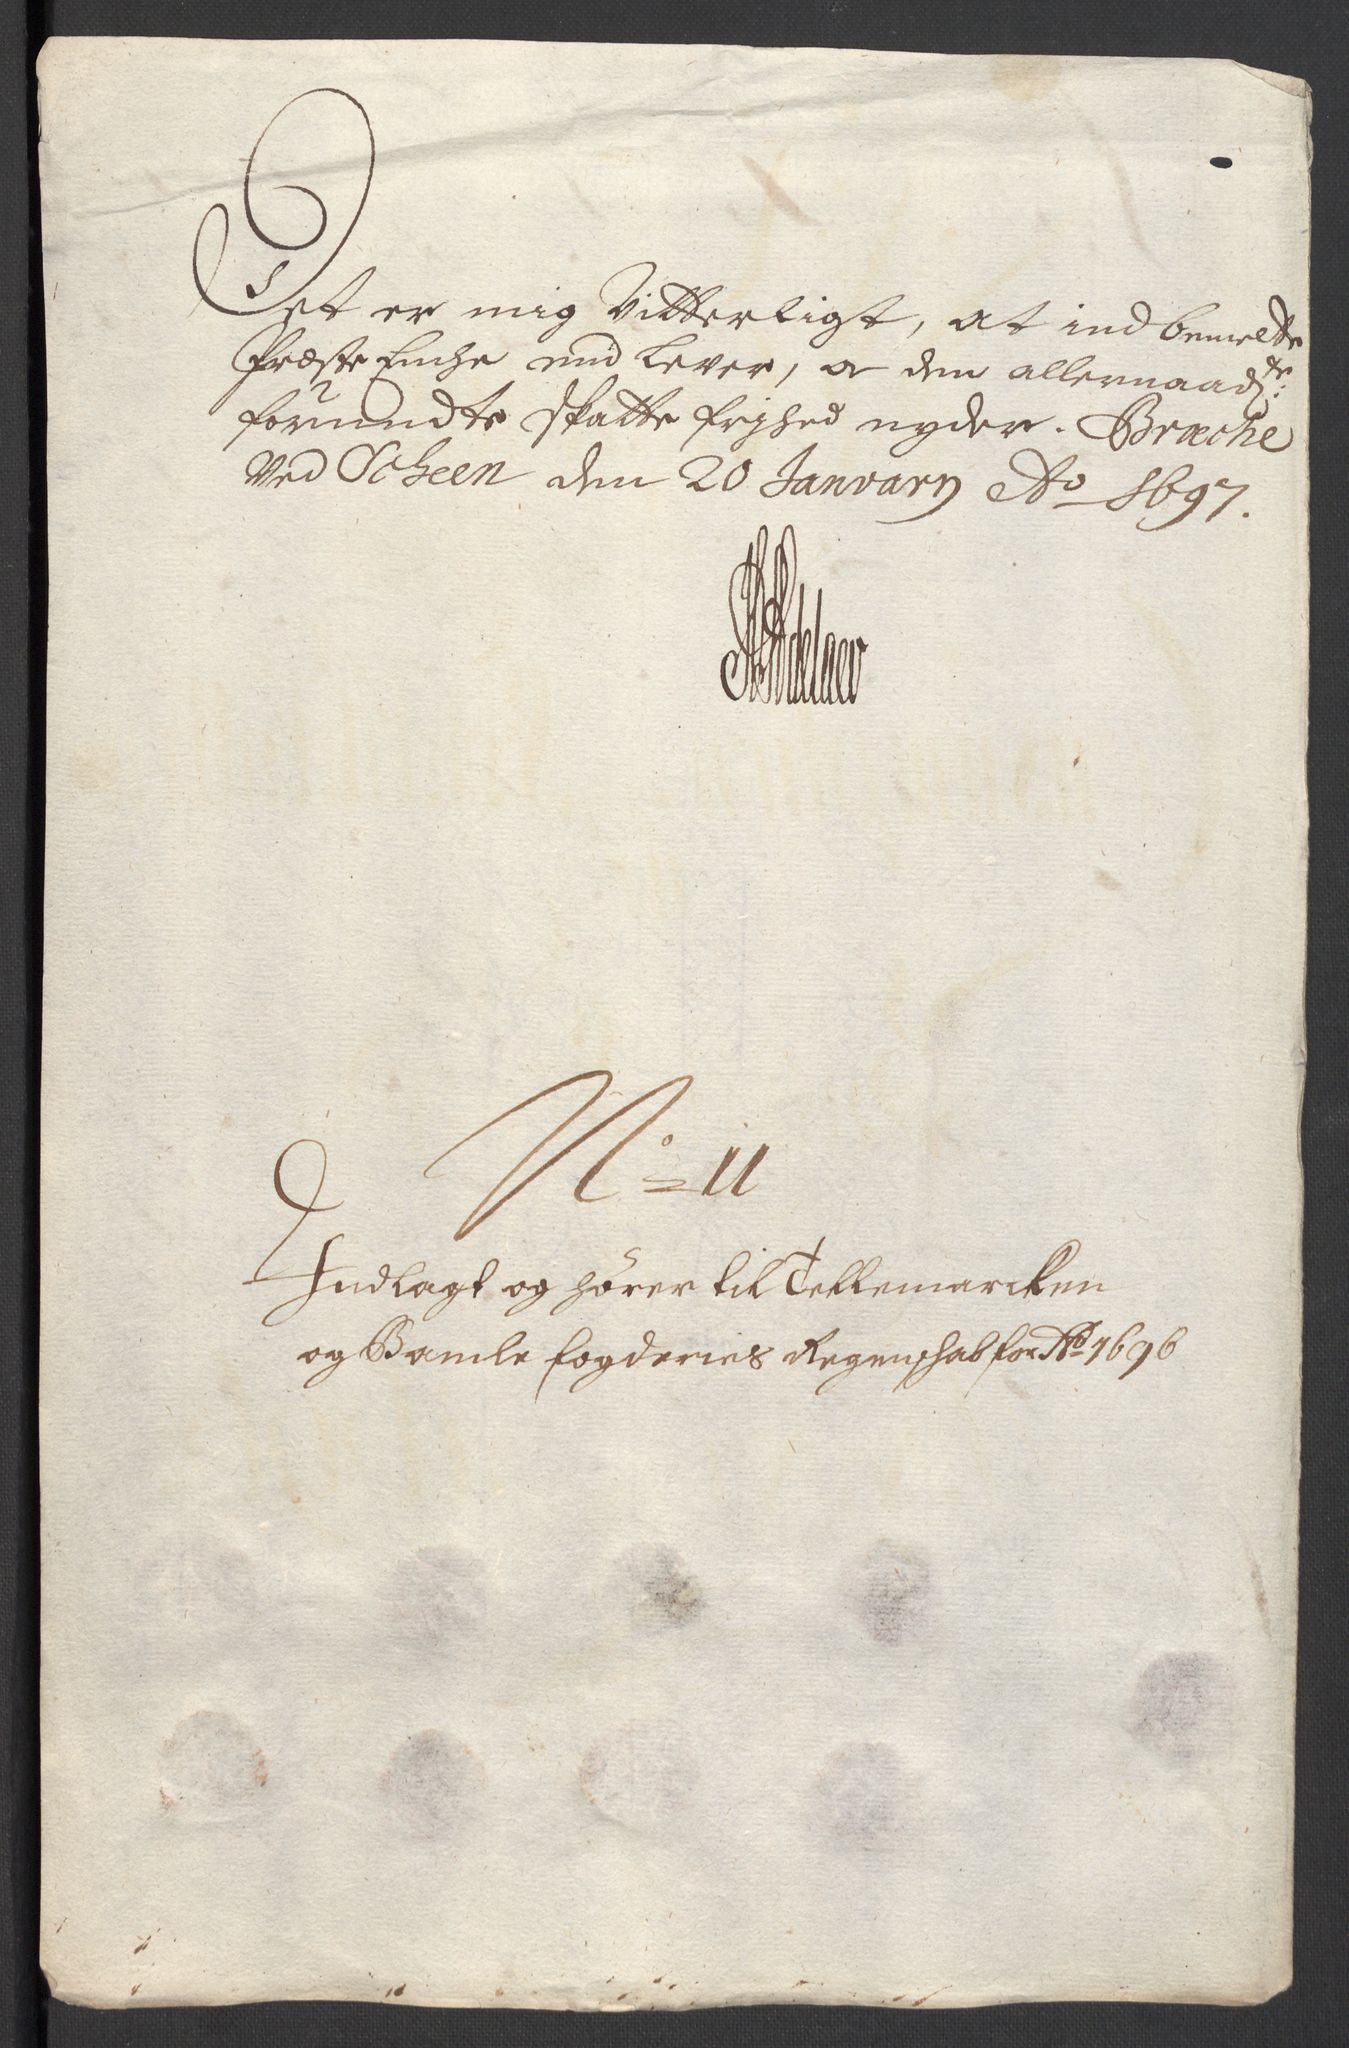 Det er mig Vitterligt, at ind bemelte
Præste Enche end lever, og den allernaadste:
forundte skatte frjhed nyder. Bræche
Ved Scheen den 20 Janvarij Ao 1697.
Adelaer
No= 11
Indlagt og hører til Tellemarcken
og Bamle fogderies Regenschab for Ao 1696